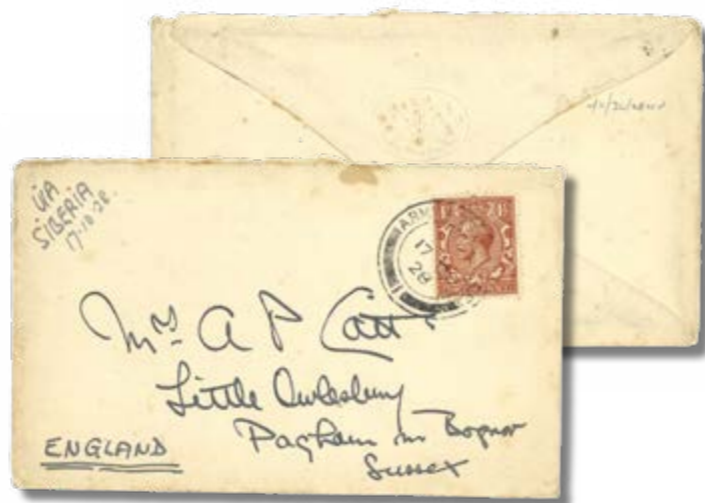 VIA
SIBERIA
17-10-28.
ARM
17
28
Mrs. A P Catt
Little
Pagham nr Bognor
Sussex
ENGLAND